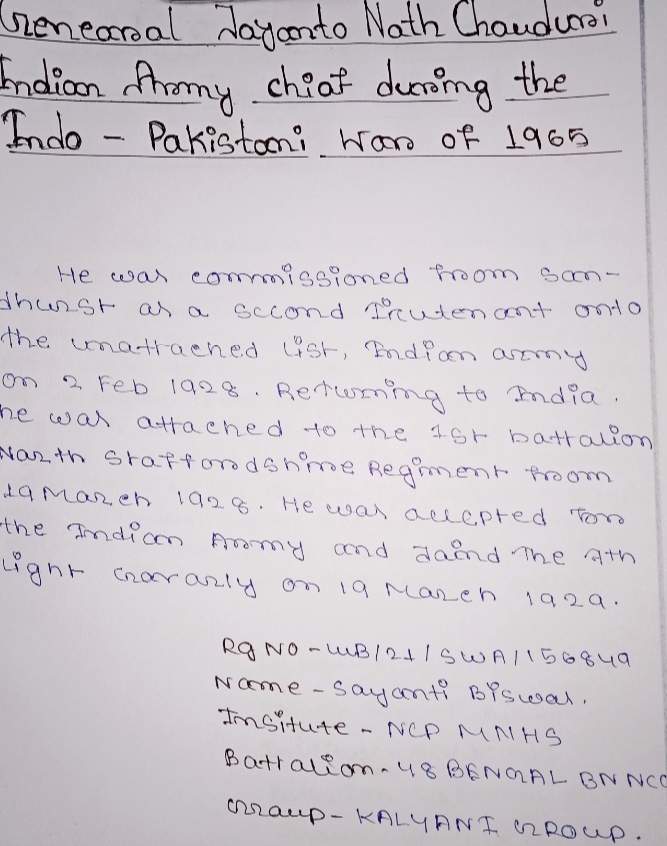 Genearal Jayanto Nath Chauduri
Indian Army chief during the
Indo - Pakistani War of 1965
He was commissioned from San-
dhurst as a second lieutenant onto
the unattached list, Indian army
on 2 Feb 1928. Returning to India.
he was attached to the 1st battalion
North Staffordshire Regiment from
19 March 1928. He was accepted for
the Indian Army and Jaind The 7th
Light Cavararly on 19 March 1929.
Rg NO - WB/21/SWA/156849
Name - Sayanti Biswas.
Insitute - NCP MNHS
Battalion - 48 BENGAL BN NCC
Group - KALYANI GROUP.